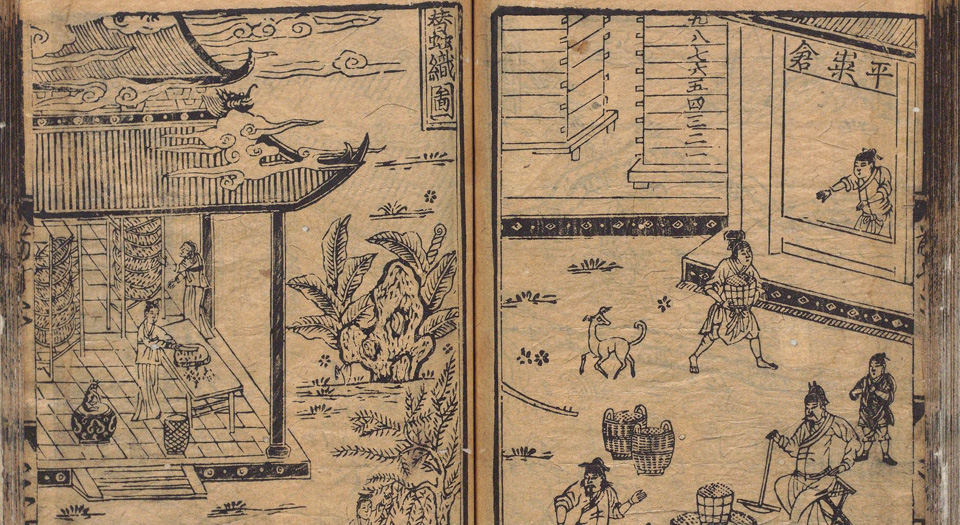 平粜倉
九八七六五四三二一
蠶織圖